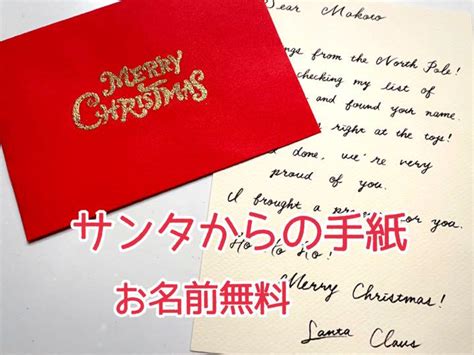 MERRY
CHRISTMAS
Dear Makoto
from the North Pole!
checking my list of
and found your name.
right at the top!
done, we're very
proud of you.
I brought a for you.
Ho Ho Ho!
Merry Christmas!
Santa Claus
サンタからの手紙
お名前無料